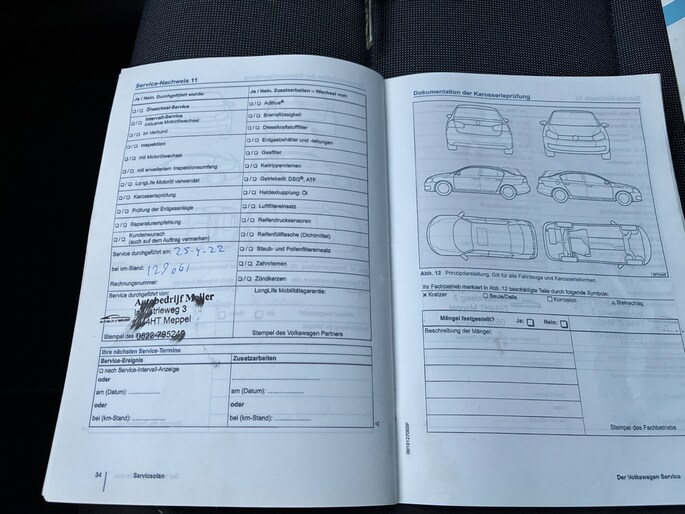 Service-Nachweis 11
Ja / Nein. Durchgeführt wurde:
Ja / Nein. Zusatzarbeiten – Wechsel von:
/ Ölwechsel-Service
/ Intervall-Service
inklusive Motorölwechsel
/ im Verbund
/ Inspektion
/ mit Motorölwechsel
/ mit erweitertem Inspektionsumfang
/ LongLife Motoröl verwendet
/ Karosserieprüfung
/ Prüfung der Erdgasanlage
/ Reparaturempfehlung
/ Kundenwunsch
(auch auf dem Auftrag vermerken)
/ AdBlue®
/ Bremsflüssigkeit
/ Dieselkraftstofffilter
/ Erdgasbehälter und -leitungen
/ Gasfilter
/ Keilrippenriemen
/ Getriebeöl: DSG®, ATF
/ Haldexkupplung: Öl
/ Luftfiltereinsatz
/ Reifendrucksensoren
/ Reifenfüllflasche (Dichtmittel)
/ Staub- und Pollenfiltereinsatz
/ Zahnriemen
/ Zündkerzen
Service durchgeführt am: 25-4-22
bei km-Stand: 129061
Rechnungsnummer:
Service durchgeführt von:
Autobedrijf Meijer
Industrieweg 3
HT Meppel
0522
Stempel des
LongLife Mobilitätsgarantie:
Stempel des Volkswagen Partners
Ihre nächsten Service-Termine
Service-Ereignis
Zusatzarbeiten
nach Service-Intervall-Anzeige
oder
am (Datum):
am (Datum):
oder
oder
bei (km-Stand):
bei (km-Stand):
34 Serviceplan
Dokumentation der Karosserieprüfung
Abb. 12 Prinzipdarstellung. Gilt für alle Fahrzeuge und Karosserieformen.
Ihr Fachbetrieb markiert in Abb. 12 beschädigte Teile durch folgende Symbole:
Kratzer
Beule/Delle
Korrosion
Steinschlag
Mängel festgestellt?
Ja:
Nein:
Beschreibung der Mängel:
Stempel des Fachbetriebs
Der Volkswagen Service